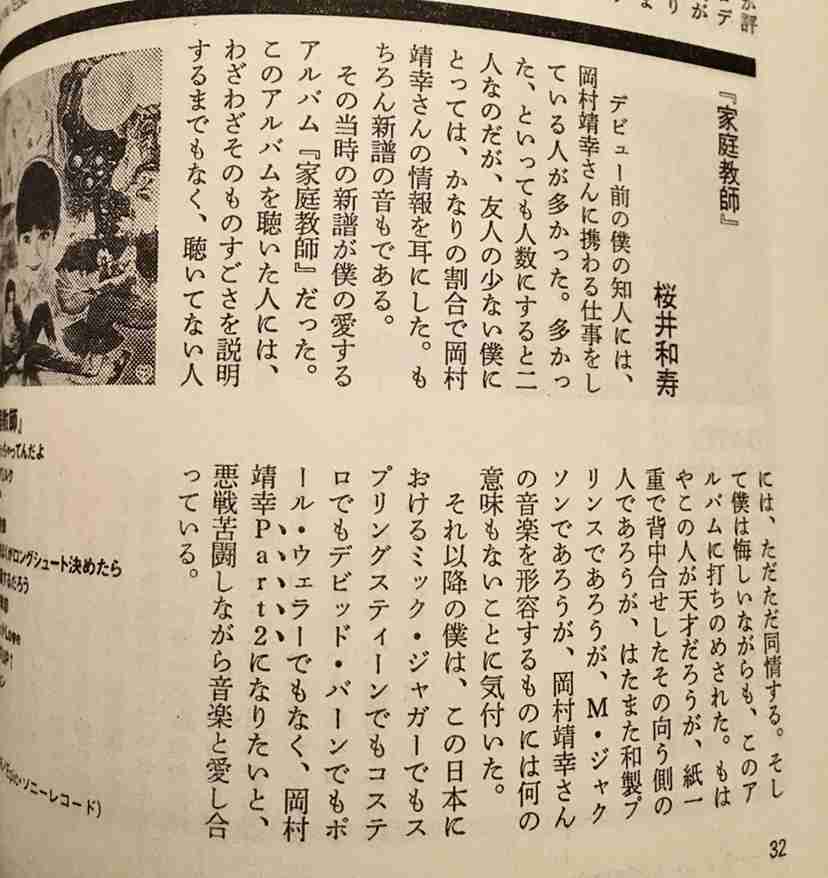 『家庭教師』
桜井和寿
デビュー前の僕の知人には、
岡村靖幸さんに携わる仕事をし
ている人が多かった。多かっ
た、といっても人数にすると二
人なのだが、友人の少ない僕に
とっては、かなりの割合で岡村
靖幸さんの情報を耳にした。も
ちろん新譜の音もである。
その当時の新譜が僕の愛する
アルバム『家庭教師』だった。
このアルバムを聴いた人には、
わざわざそのものすごさを説明
するまでもなく、聴いてない人
には、ただただ同情する。そし
て僕は悔しいながらも、このア
ルバムに打ちのめされた。もは
やこの人が天才だろうが、紙一
重で背中合せしたその向う側の
人であろうが、はたまた和製プ
リンスであろうが、M・ジャク
ソンであろうが、岡村靖幸さん
の音楽を形容するものには何の
意味もないことに気付いた。
それ以降の僕は、この日本に
おけるミック・ジャガーでもス
プリングスティーンでもコステ
ロでもデビッド・バーンでもポ
ール・ウェラーでもなく、岡村
靖幸Part2になりたいと、
悪戦苦闘しながら音楽と愛し合
っている。
教師』
ちゃってんだよ
ロングシュート決めたら
するだろう
ソニーレコード）
32